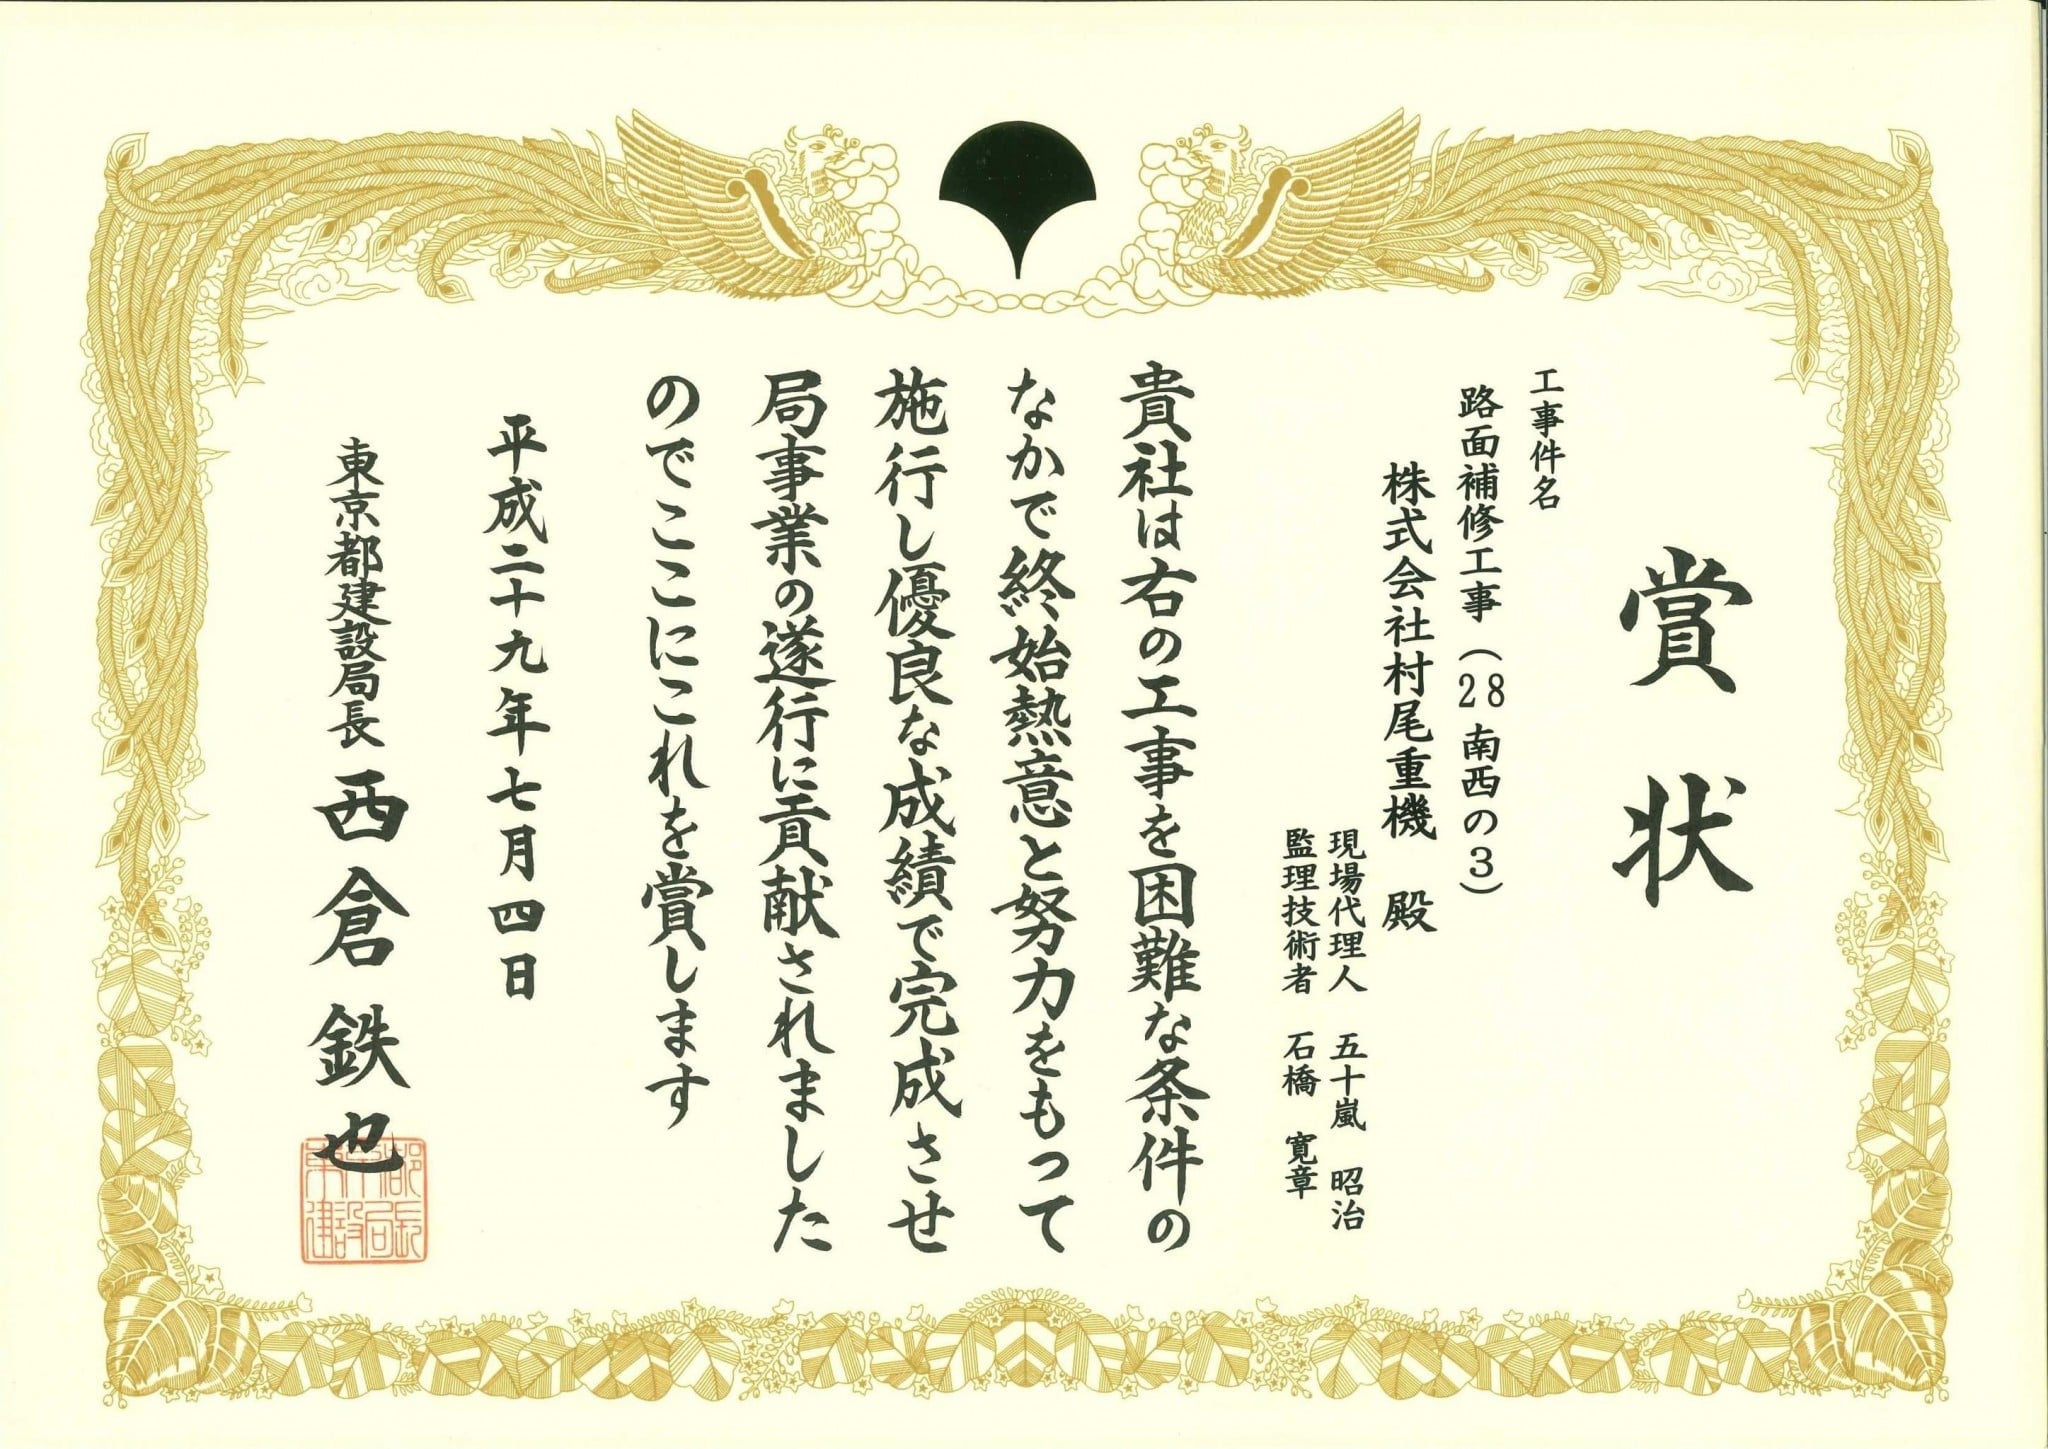 賞状
工事件名
路面補修工事（28南西の3）
株式会社村尾重機　殿
現場代理人　五十嵐　昭治
監理技術者　石橋　寛章
貴社は右の工事を困難な条件の
なかで終始熱意と努力をもって
施行し優良な成績で完成させ
局事業の遂行に貢献されました
のでここにこれを賞します
平成二十九年七月四日
東京都建設局長　西倉鉄也
東京都
建設局長